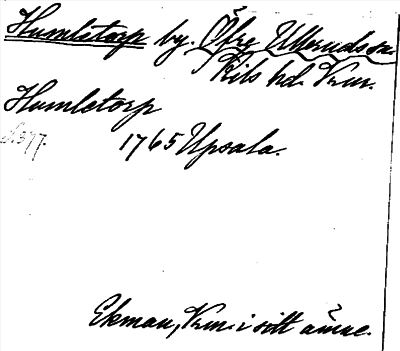 Humletorp by. Öfre Ulleruds sn.
Kils hd. Vrm.
Humletorp
1765 Upsala.
Ekman, Vrm. i sitt ämne.